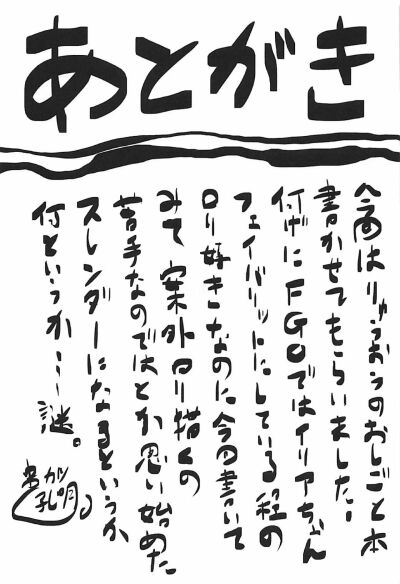 あとがき
今回はりゅうおうのおしごと本
書かせてもらいました!
付げにFGOではイリアちゃん
フェイバリットにしている程の
ロリ好きなのに今回書いて
みて案外ロリ描くの
苦手なのではとか思い始めた
スレンダーになるというか
何というか…謎。